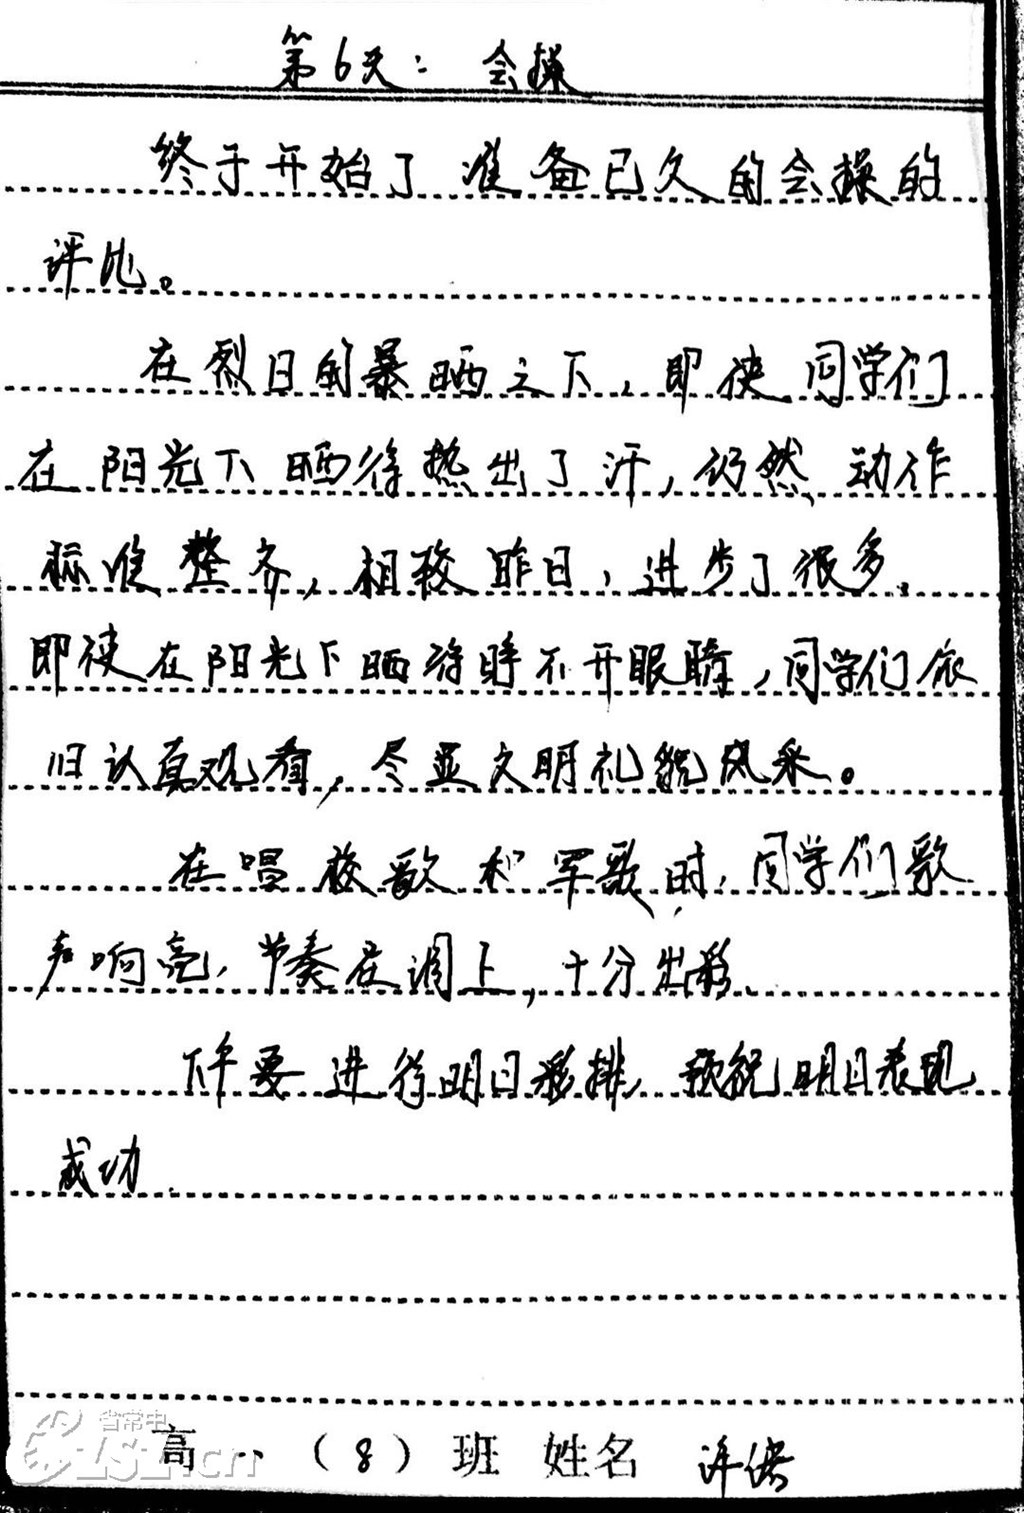 第6天：会操
终于开始了准备已久的会操的
评比。
在烈日的暴晒之下，即使同学们
在阳光下晒得热出了汗，仍然动作
标准整齐，相较昨日，进步了很多。
即使在阳光下晒得睁不开眼睛，同学们依
旧认真观看，尽显文明礼貌风采。
在唱校歌和军歌时，同学们歌
声响亮，节奏在调上，十分出彩。
下午要进行明日彩排，预祝明日表现
成功.
高一（8）班 姓名 许
省常中